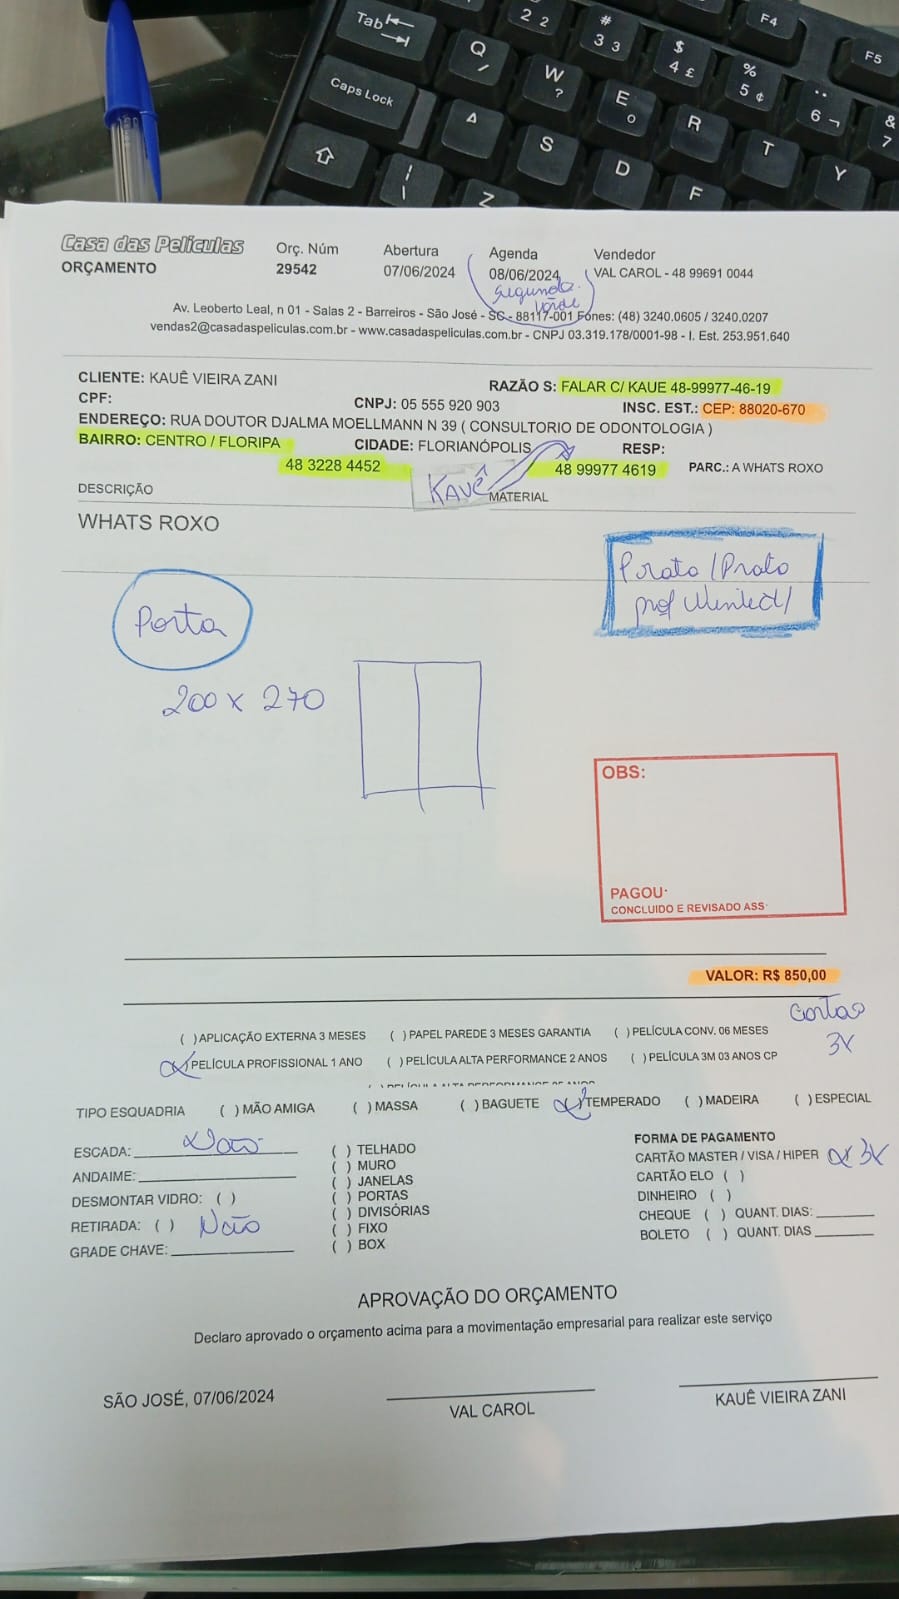 Tab
Caps Lock
Q
/
W
?
E
R
T
Y
S
D
F
Z
2 2
#
3 3
$
4 £
%
5 ¢
6 ¬
&
7
F4
F5
Casa das Películas
ORÇAMENTO
Orç. Núm
29542
Abertura
07/06/2024
Agenda
08/06/2024
Segunda
Vendedor
VAL CAROL - 48 99691 0044
Av. Leoberto Leal, n 01 - Salas 2 - Barreiros - São José - SC - 88117-001 Fones: (48) 3240.0605 / 3240.0207
vendas2@casadaspeliculas.com.br - www.casadaspeliculas.com.br - CNPJ 03.319.178/0001-98 - I. Est. 253.951.640
CLIENTE: KAUÊ VIEIRA ZANI
RAZÃO S: FALAR C/ KAUE 48-99977-46-19
CPF:
CNPJ: 05 555 920 903
INSC. EST.: CEP: 88020-670
ENDEREÇO: RUA DOUTOR DJALMA MOELLMANN N 39 ( CONSULTORIO DE ODONTOLOGIA )
BAIRRO: CENTRO / FLORIPA
CIDADE: FLORIANÓPOLIS
RESP:
48 3228 4452
KAUÊ
48 99977 4619
PARC.: A WHATS ROXO
DESCRIÇÃO
MATERIAL
WHATS ROXO
Prata / Prata
prof
Porta
200 x 270
OBS:
PAGOU:
CONCLUIDO E REVISADO ASS:
VALOR: R$ 850,00
Cartão
3X
( ) APLICAÇÃO EXTERNA 3 MESES ( ) PAPEL PAREDE 3 MESES GARANTIA ( ) PELÍCULA CONV. 06 MESES
(x) PELÍCULA PROFISSIONAL 1 ANO ( ) PELÍCULA ALTA PERFORMANCE 2 ANOS ( ) PELÍCULA 3M 03 ANOS CP
TIPO ESQUADRIA ( ) MÃO AMIGA ( ) MASSA ( ) BAGUETE (x) TEMPERADO ( ) MADEIRA ( ) ESPECIAL
ESCADA: Não
ANDAIME:
DESMONTAR VIDRO: ( )
RETIRADA: ( ) Não
GRADE CHAVE:
( ) TELHADO
( ) MURO
( ) JANELAS
( ) PORTAS
( ) DIVISÓRIAS
( ) FIXO
( ) BOX
FORMA DE PAGAMENTO
CARTÃO MASTER / VISA / HIPER (x) 3X
CARTÃO ELO ( )
DINHEIRO ( )
CHEQUE ( ) QUANT. DIAS:
BOLETO ( ) QUANT. DIAS
APROVAÇÃO DO ORÇAMENTO
Declaro aprovado o orçamento acima para a movimentação empresarial para realizar este serviço
SÃO JOSÉ, 07/06/2024
VAL CAROL
KAUÊ VIEIRA ZANI